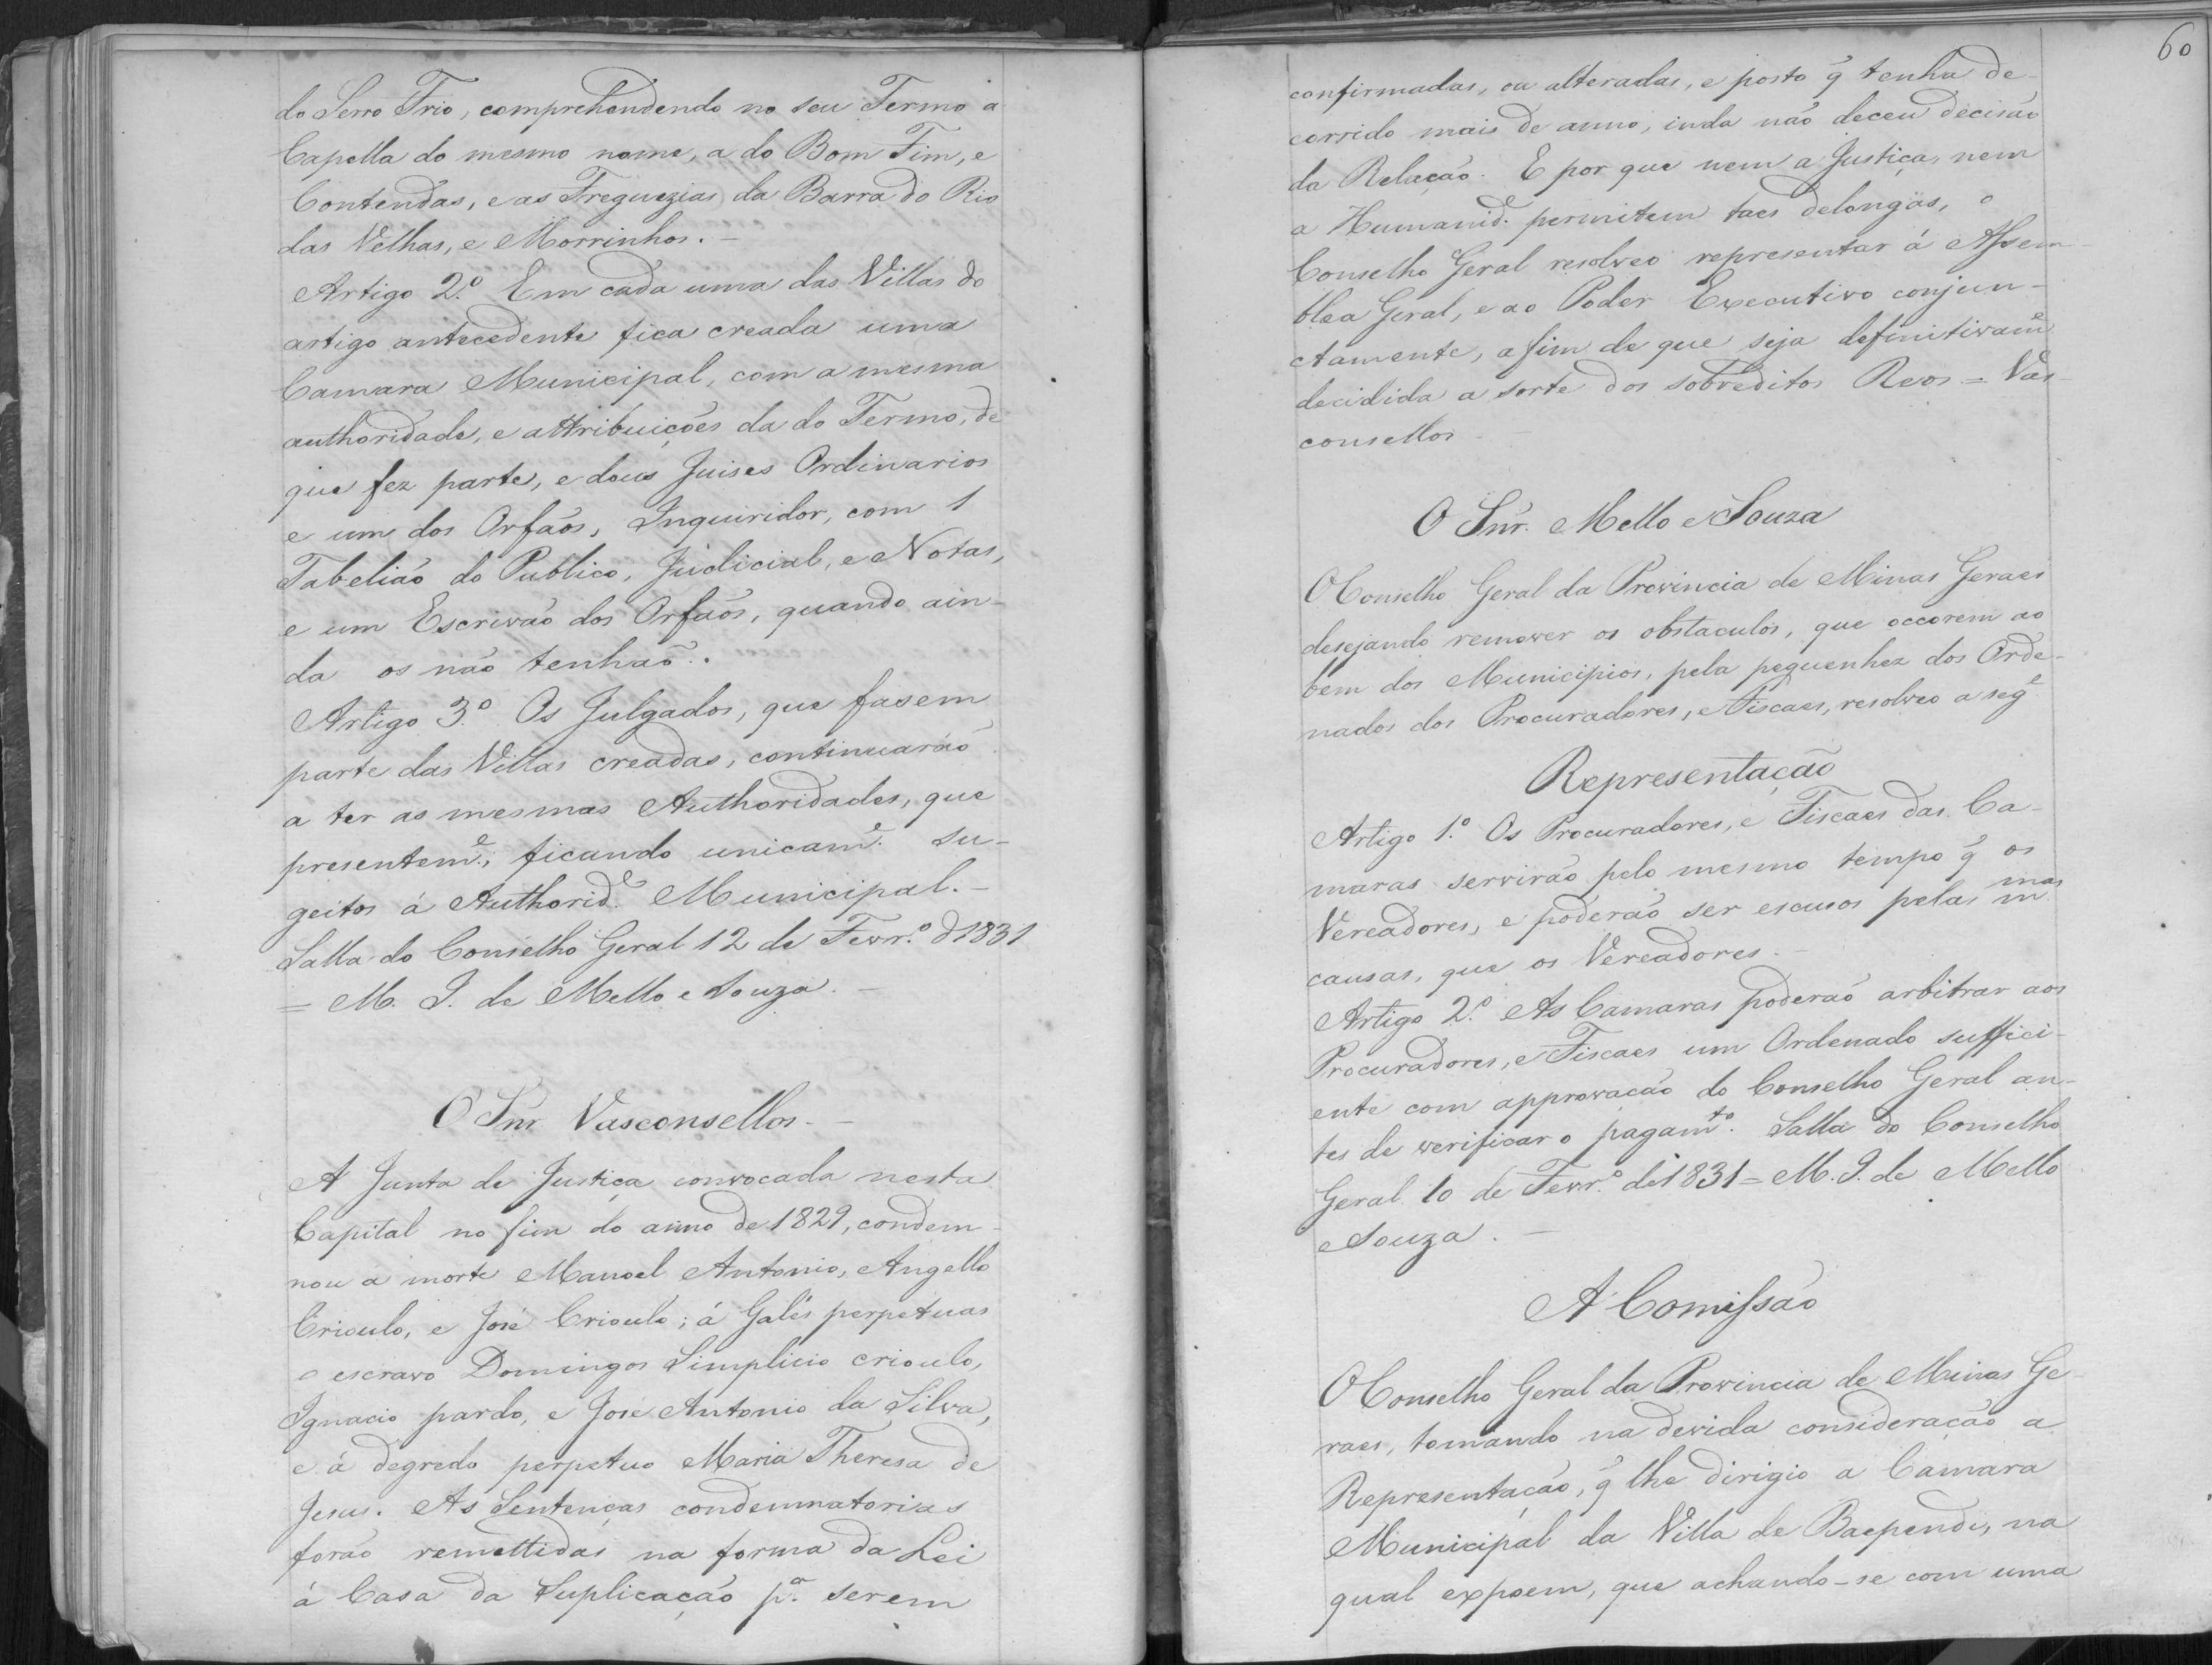 do Serro Frio, comprehendendo no seu Termo a
Capella do mesmo nome, a do Bom Fim, e
Contendas, e as Freguezias da Barra do Rio
das Velhas, e Morrinhos. -
Artigo 2.º Em cada uma das Villas do
artigo antecedente fica creada uma
Camara Municipal, com a mesma
authoridade, e attribuições da do Termo, de
que fez parte, e dous Juises Ordinarios
e um dos Orfãos, Inquiridor, com 1
Tabelião do Publico, Judicial, e Notas,
e um Escrivão dos Orfãos, quando ain-
da os não tenhão..
Artigo 3.º Os Julgados, que fasem
parte das Villas creadas, continuarão
a ter as mesmas Authoridades, que
presentem.e, ficando unicam.e su-
geitos á Authorid.e Municipal. -
Salla do Conselho Geral 12 de Fevr.º d 1831
= M. I. de Mello e Souza. -
O Snr Vasconsellos. -
A Junta de Justiça convocada nesta
Capital no fim do anno de 1829, condem-
nou a morte Manoel Antonio, Angello
Crioulo, e José Crioulo; á Galés perpetuas
o escravo Domingos Simplicio crioulo,
Ignacio pardo, e Jose Antonio da Silva,
e á degredo perpetuo Maria Theresa de
Jesus. As Sentenças condemnatorias
forão remettidas na forma da Lei
á Casa da Suplicação p.a serem
60
confirmadas, ou alteradas, e posto q̃ tenha de-
corrido mais de anno, inda não deceu decisão
da Relação. E por que nem a Justiça, nem
a Humanid.e permitem taes delongas, o
Conselho Geral resolveo representar á Assem-
blea Geral, e ao Poder Executivo conjun-
ctamente, a fim de que seja definitivam.e
decidida a sorte dos sobreditos Reos = Vas-
consellos -
O Snr. Mello e Souza
O Conselho Geral da Provincia de Minas Geraes
desejando remover os obstaculos, que occorem ao
bem dos Municipios, pela pequenhez dos Orde-
nados dos Procuradores, e Fiscaes, resolveo a seg.e
Representação
Artigo 1.º Os Procuradores, e Fiscaes das Ca-
maras servirão pelo mesmo tempo q̃ os
Vereadores, e poderão ser escusos pelas m.mas
causas, que os Vereadores. -
Artigo 2.º As Camaras poderão arbitrar aos
Procuradores, e Fiscaes um Ordenado suffici-
ente com approvacão do Conselho Geral an-
tes de verificar o pagam.to. Salla do Conselho
Geral 10 de Fevr.º de 1831 = M. I. de Mello
e Souza. -
A Comissão
O Conselho Geral da Provincia de Minas Ge
raes, tomando na devida consideração a
Representação, q̃ lhe dirigio a Camara
Municipal da Villa de Baependi, na
qual expoem, que achando-se com uma